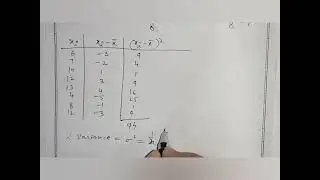 8
xᵢ | xᵢ - x̄ | (xᵢ - x̄)²
6 | -3 | 9
7 | -2 | 4
10 | 1 | 1
12 | 3 | 9
13 | 4 | 16
4 | -5 | 25
8 | -1 | 1
12 | 3 | 9
74
∴ Variance = σ² = 1/n